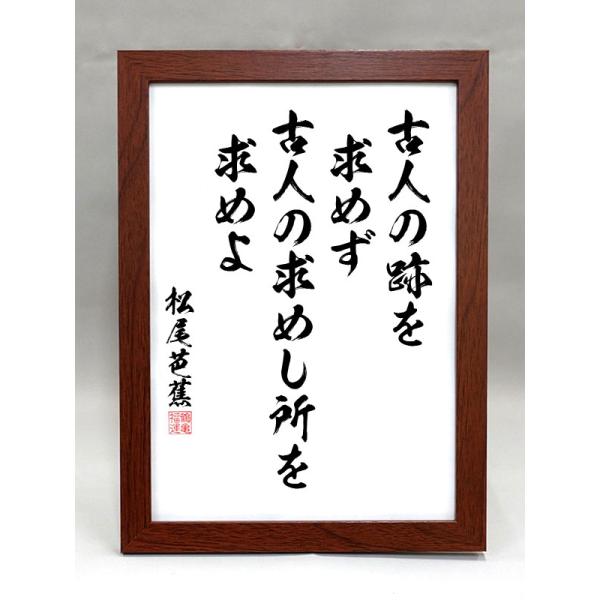 古人の跡を
求めず
古人の求めし所を
求めよ
松尾芭蕉